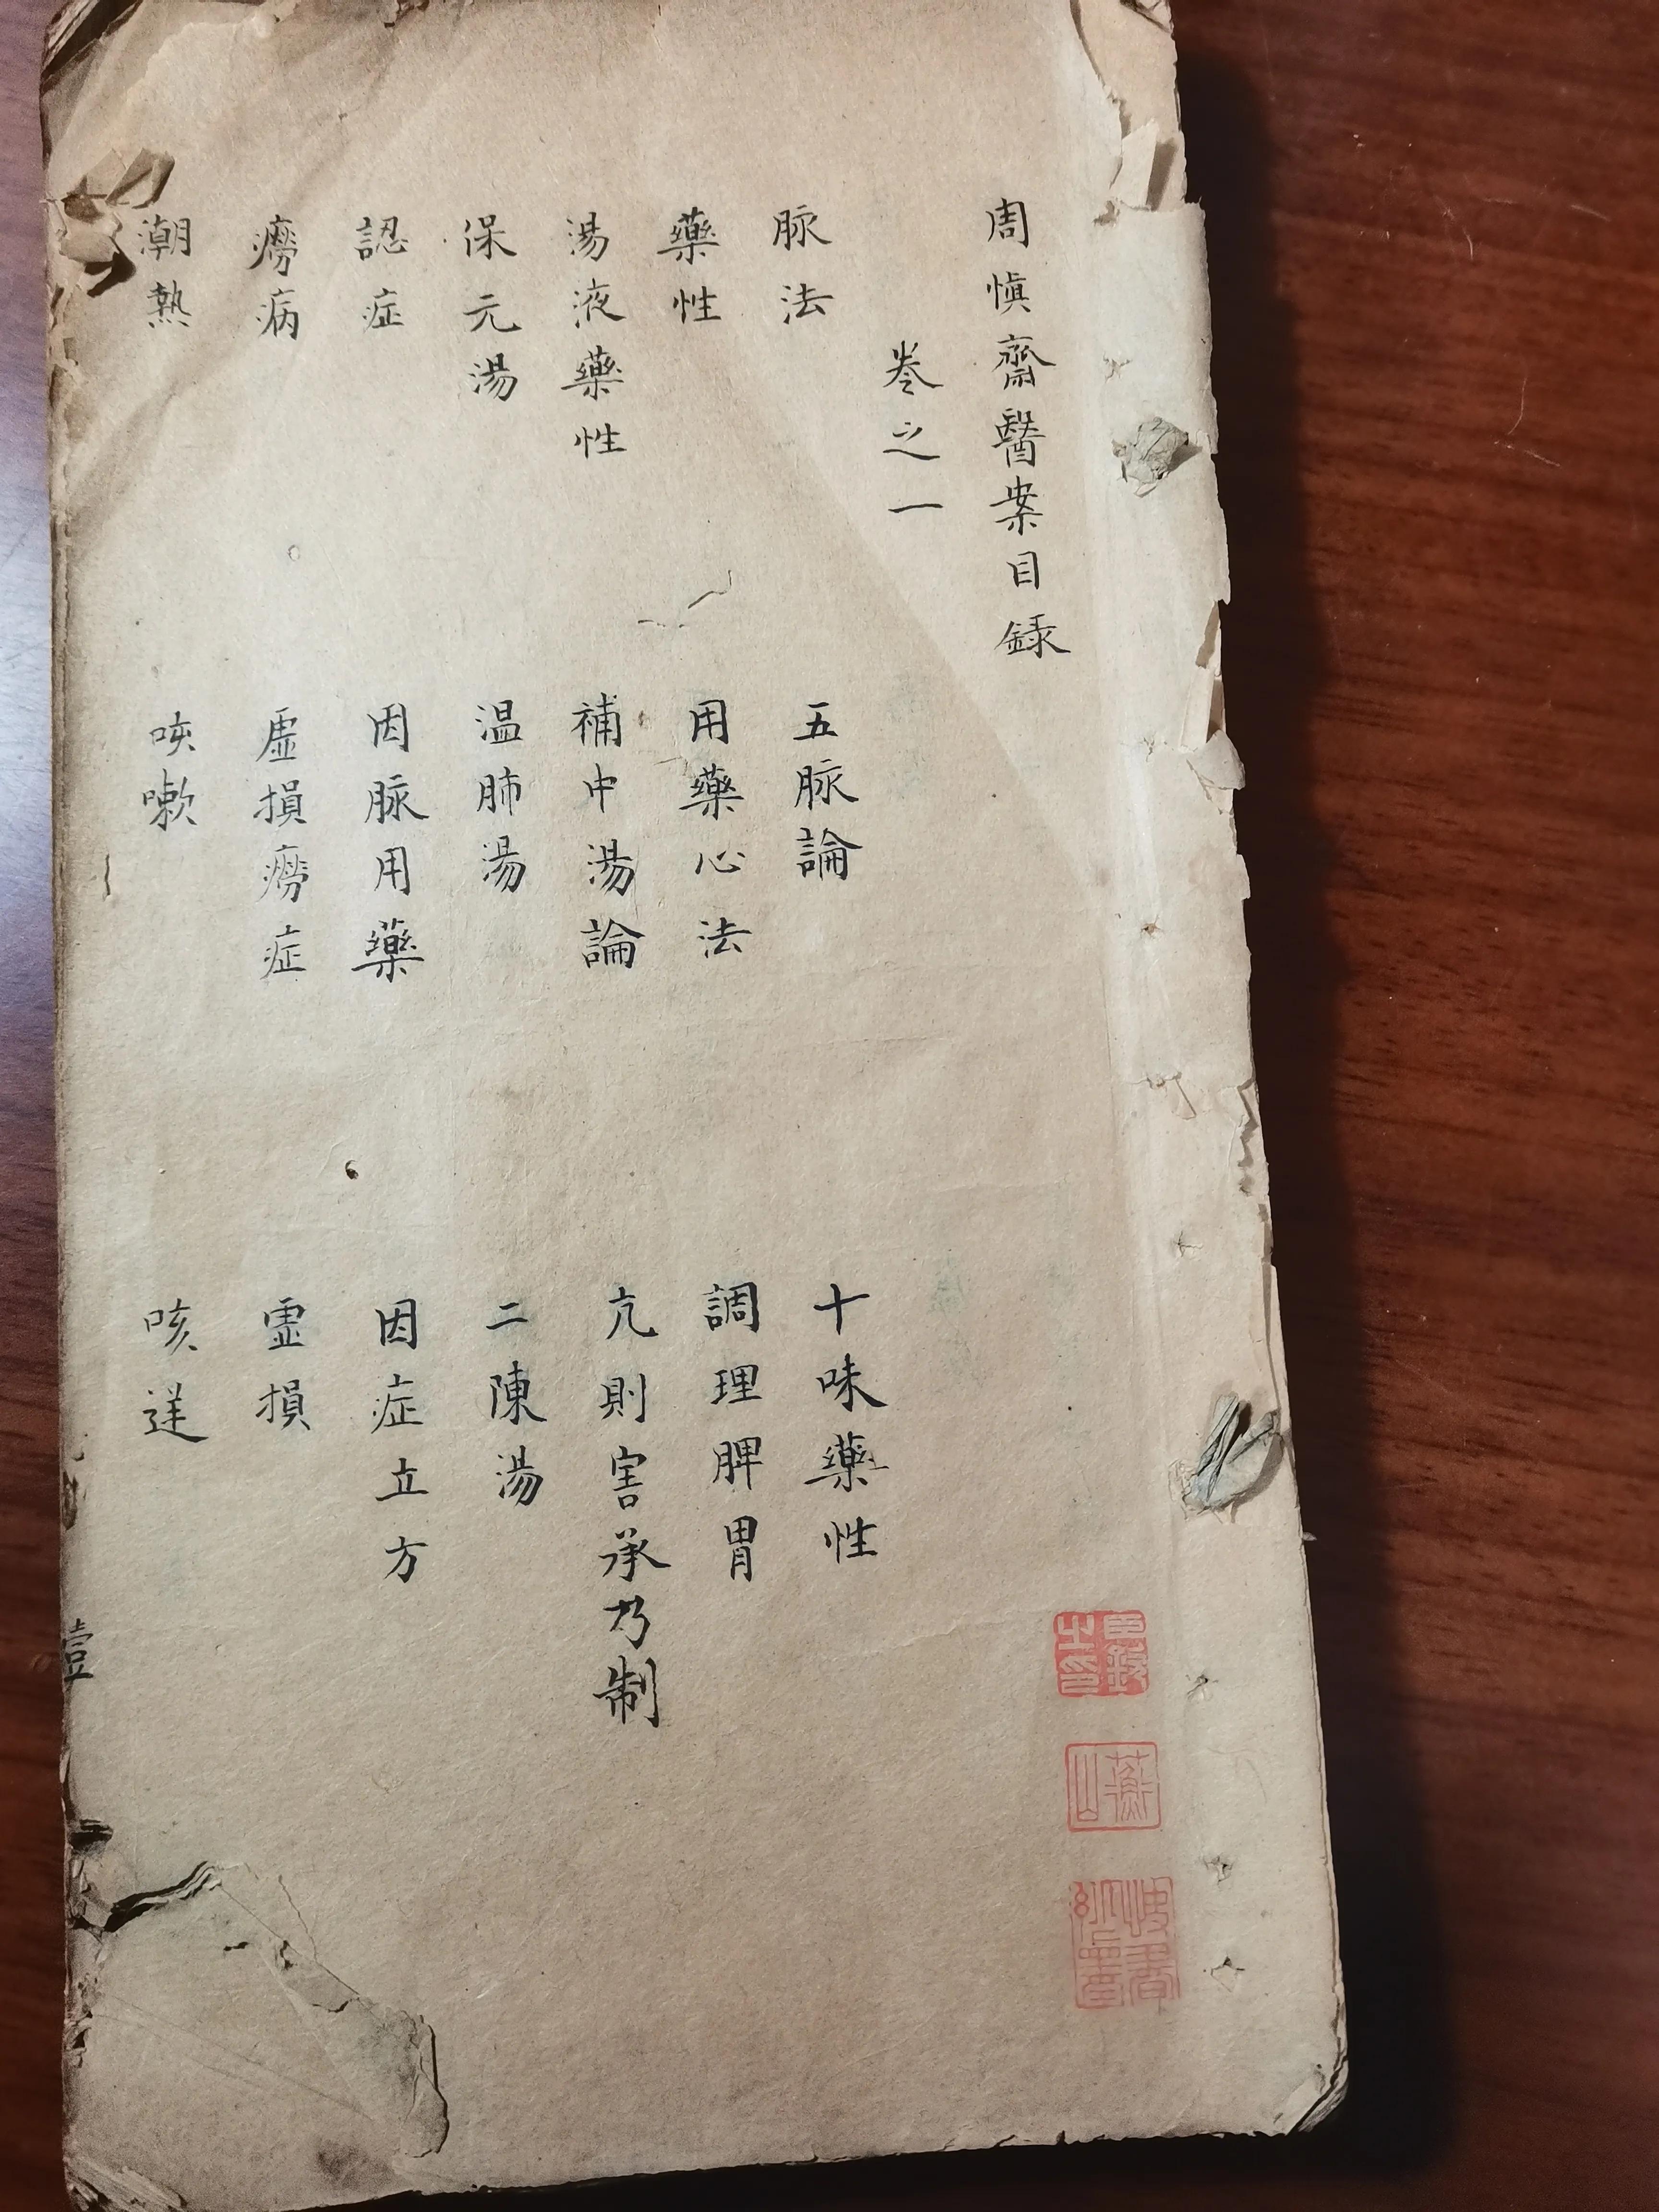 周慎齋醫案目録
卷之一
脉法 五脉論 十味藥性
藥性 用藥心法 調理脾胃
湯液藥性 補中湯論 亢則害承乃制
保元湯 温肺湯 二陳湯
認症 因脉用藥 因症立方
癆病 虛損癆症 虛損
潮熱 咳嗽 咳逆
壹